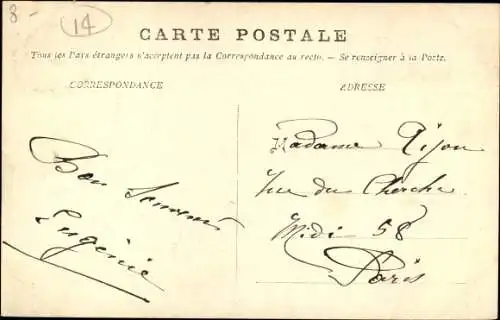 8-
14
CARTE POSTALE
Tous les Pays étrangers n'acceptent pas la Correspondance au recto. — Se renseigner à la Poste.
CORRESPONDANCE
ADRESSE
Bon Souvenir
Eugénie
Madame Pijon
Rue du Cherche
Midi 58
Paris